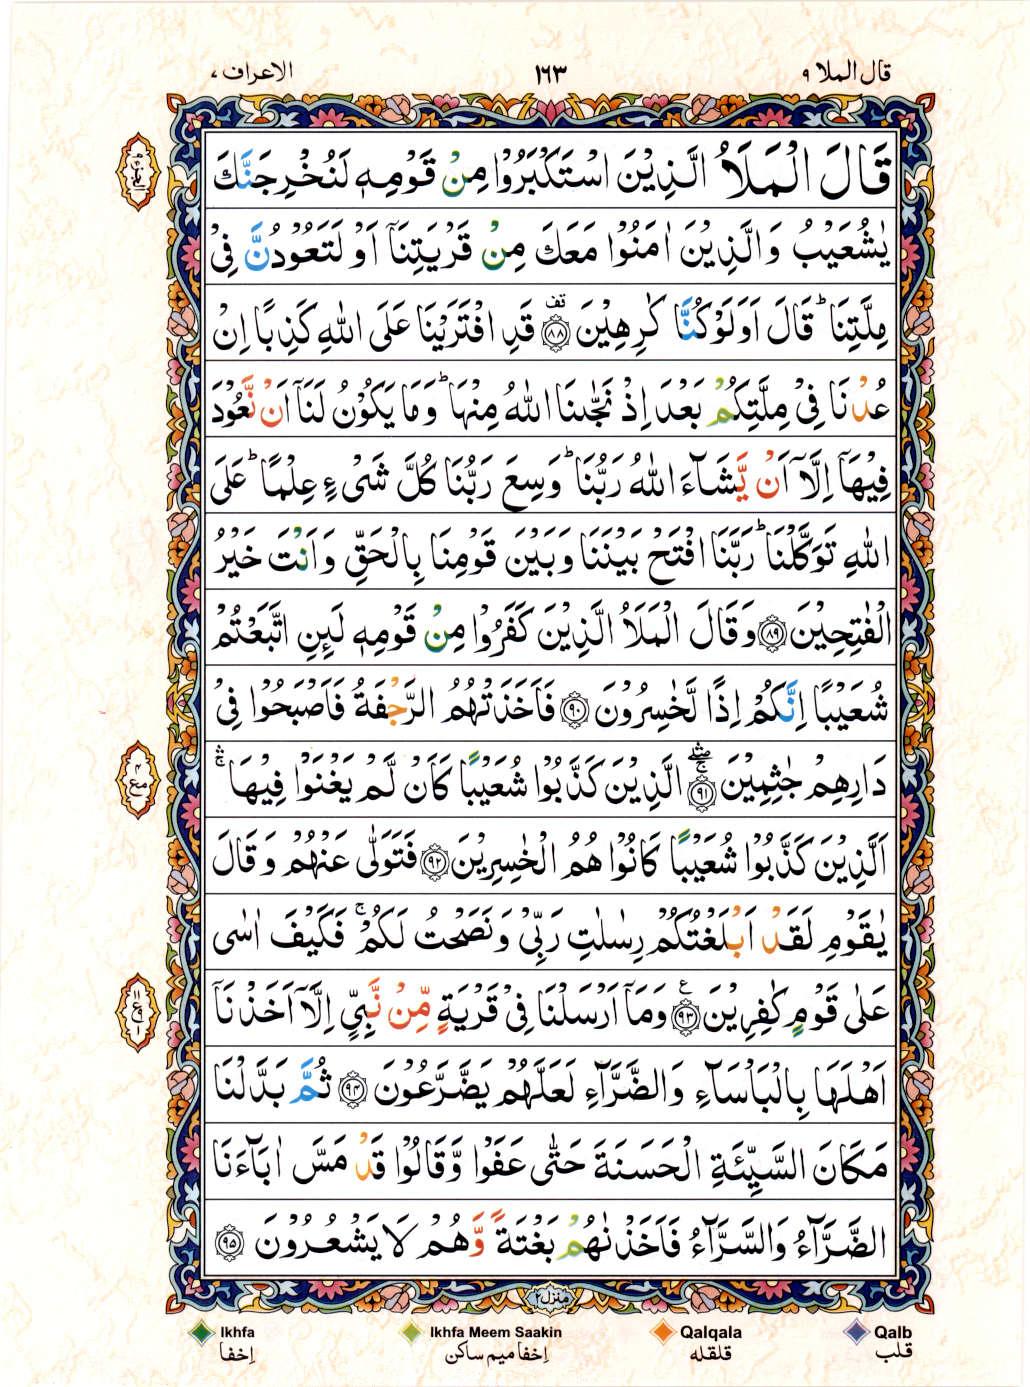 قال الملا ۹
۱۶۳
الاعراف ۷
الجزء ۹
قَالَ الْمَلَاُ الَّذِیْنَ اسْتَكْبَرُوْا مِنْ قَوْمِهٖ لَنُخْرِجَنَّكَ
یٰشُعَیْبُ وَالَّذِیْنَ اٰمَنُوْا مَعَكَ مِنْ قَرْیَتِنَاۤ اَوْ لَتَعُوْدُنَّ فِیْ
مِلَّتِنَا ؕ قَالَ اَوَلَوْ كُنَّا كٰرِهِیْنَ ۟ۚ ﴿۸۸﴾ قَدِ افْتَرَیْنَا عَلَی اللّٰهِ كَذِبًا اِنْ
عُدْنَا فِیْ مِلَّتِكُمْ بَعْدَ اِذْ نَجّٰىنَا اللّٰهُ مِنْهَا ؕ وَمَا یَكُوْنُ لَنَاۤ اَنْ نَّعُوْدَ
فِیْهَاۤ اِلَّاۤ اَنْ یَّشَآءَ اللّٰهُ رَبُّنَا ؕ وَسِعَ رَبُّنَا كُلَّ شَیْءٍ عِلْمًا ؕ عَلَی
اللّٰهِ تَوَكَّلْنَا ؕ رَبَّنَا افْتَحْ بَیْنَنَا وَبَیْنَ قَوْمِنَا بِالْحَقِّ وَاَنْتَ خَیْرُ
الْفٰتِحِیْنَ ﴿۸۹﴾ وَقَالَ الْمَلَاُ الَّذِیْنَ كَفَرُوْا مِنْ قَوْمِهٖ لَىِٕنِ اتَّبَعْتُمْ
شُعَیْبًا اِنَّكُمْ اِذًا لَّخٰسِرُوْنَ ﴿۹۰﴾ فَاَخَذَتْهُمُ الرَّجْفَةُ فَاَصْبَحُوْا فِیْ
دَارِهِمْ جٰثِمِیْنَ ﴿۹۱﴾ الَّذِیْنَ كَذَّبُوْا شُعَیْبًا كَاَنْ لَّمْ یَغْنَوْا فِیْهَا ۛۚ
اَلَّذِیْنَ كَذَّبُوْا شُعَیْبًا كَانُوْا هُمُ الْخٰسِرِیْنَ ﴿۹۲﴾ فَتَوَلّٰی عَنْهُمْ وَقَالَ
یٰقَوْمِ لَقَدْ اَبْلَغْتُكُمْ رِسٰلٰتِ رَبِّیْ وَنَصَحْتُ لَكُمْ ۚ فَكَیْفَ اٰسٰی
عَلٰی قَوْمٍ كٰفِرِیْنَ ﴿۹۳﴾ وَمَاۤ اَرْسَلْنَا فِیْ قَرْیَةٍ مِّنْ نَّبِیٍّ اِلَّاۤ اَخَذْنَاۤ
اَهْلَهَا بِالْبَاْسَآءِ وَالضَّرَّآءِ لَعَلَّهُمْ یَضَّرَّعُوْنَ ﴿۹۴﴾ ثُمَّ بَدَّلْنَا
مَكَانَ السَّیِّئَةِ الْحَسَنَةَ حَتّٰی عَفَوْا وَّقَالُوْا قَدْ مَسَّ اٰبَآءَنَا
الضَّرَّآءُ وَالسَّرَّآءُ فَاَخَذْنٰهُمْ بَغْتَةً وَّهُمْ لَا یَشْعُرُوْنَ ﴿۹۵﴾
منزل ۲
Ikhfa Ikhfa Meem Saakin Qalqala Qalb
اِخفا اِخفا میم ساکن قلقله قلب